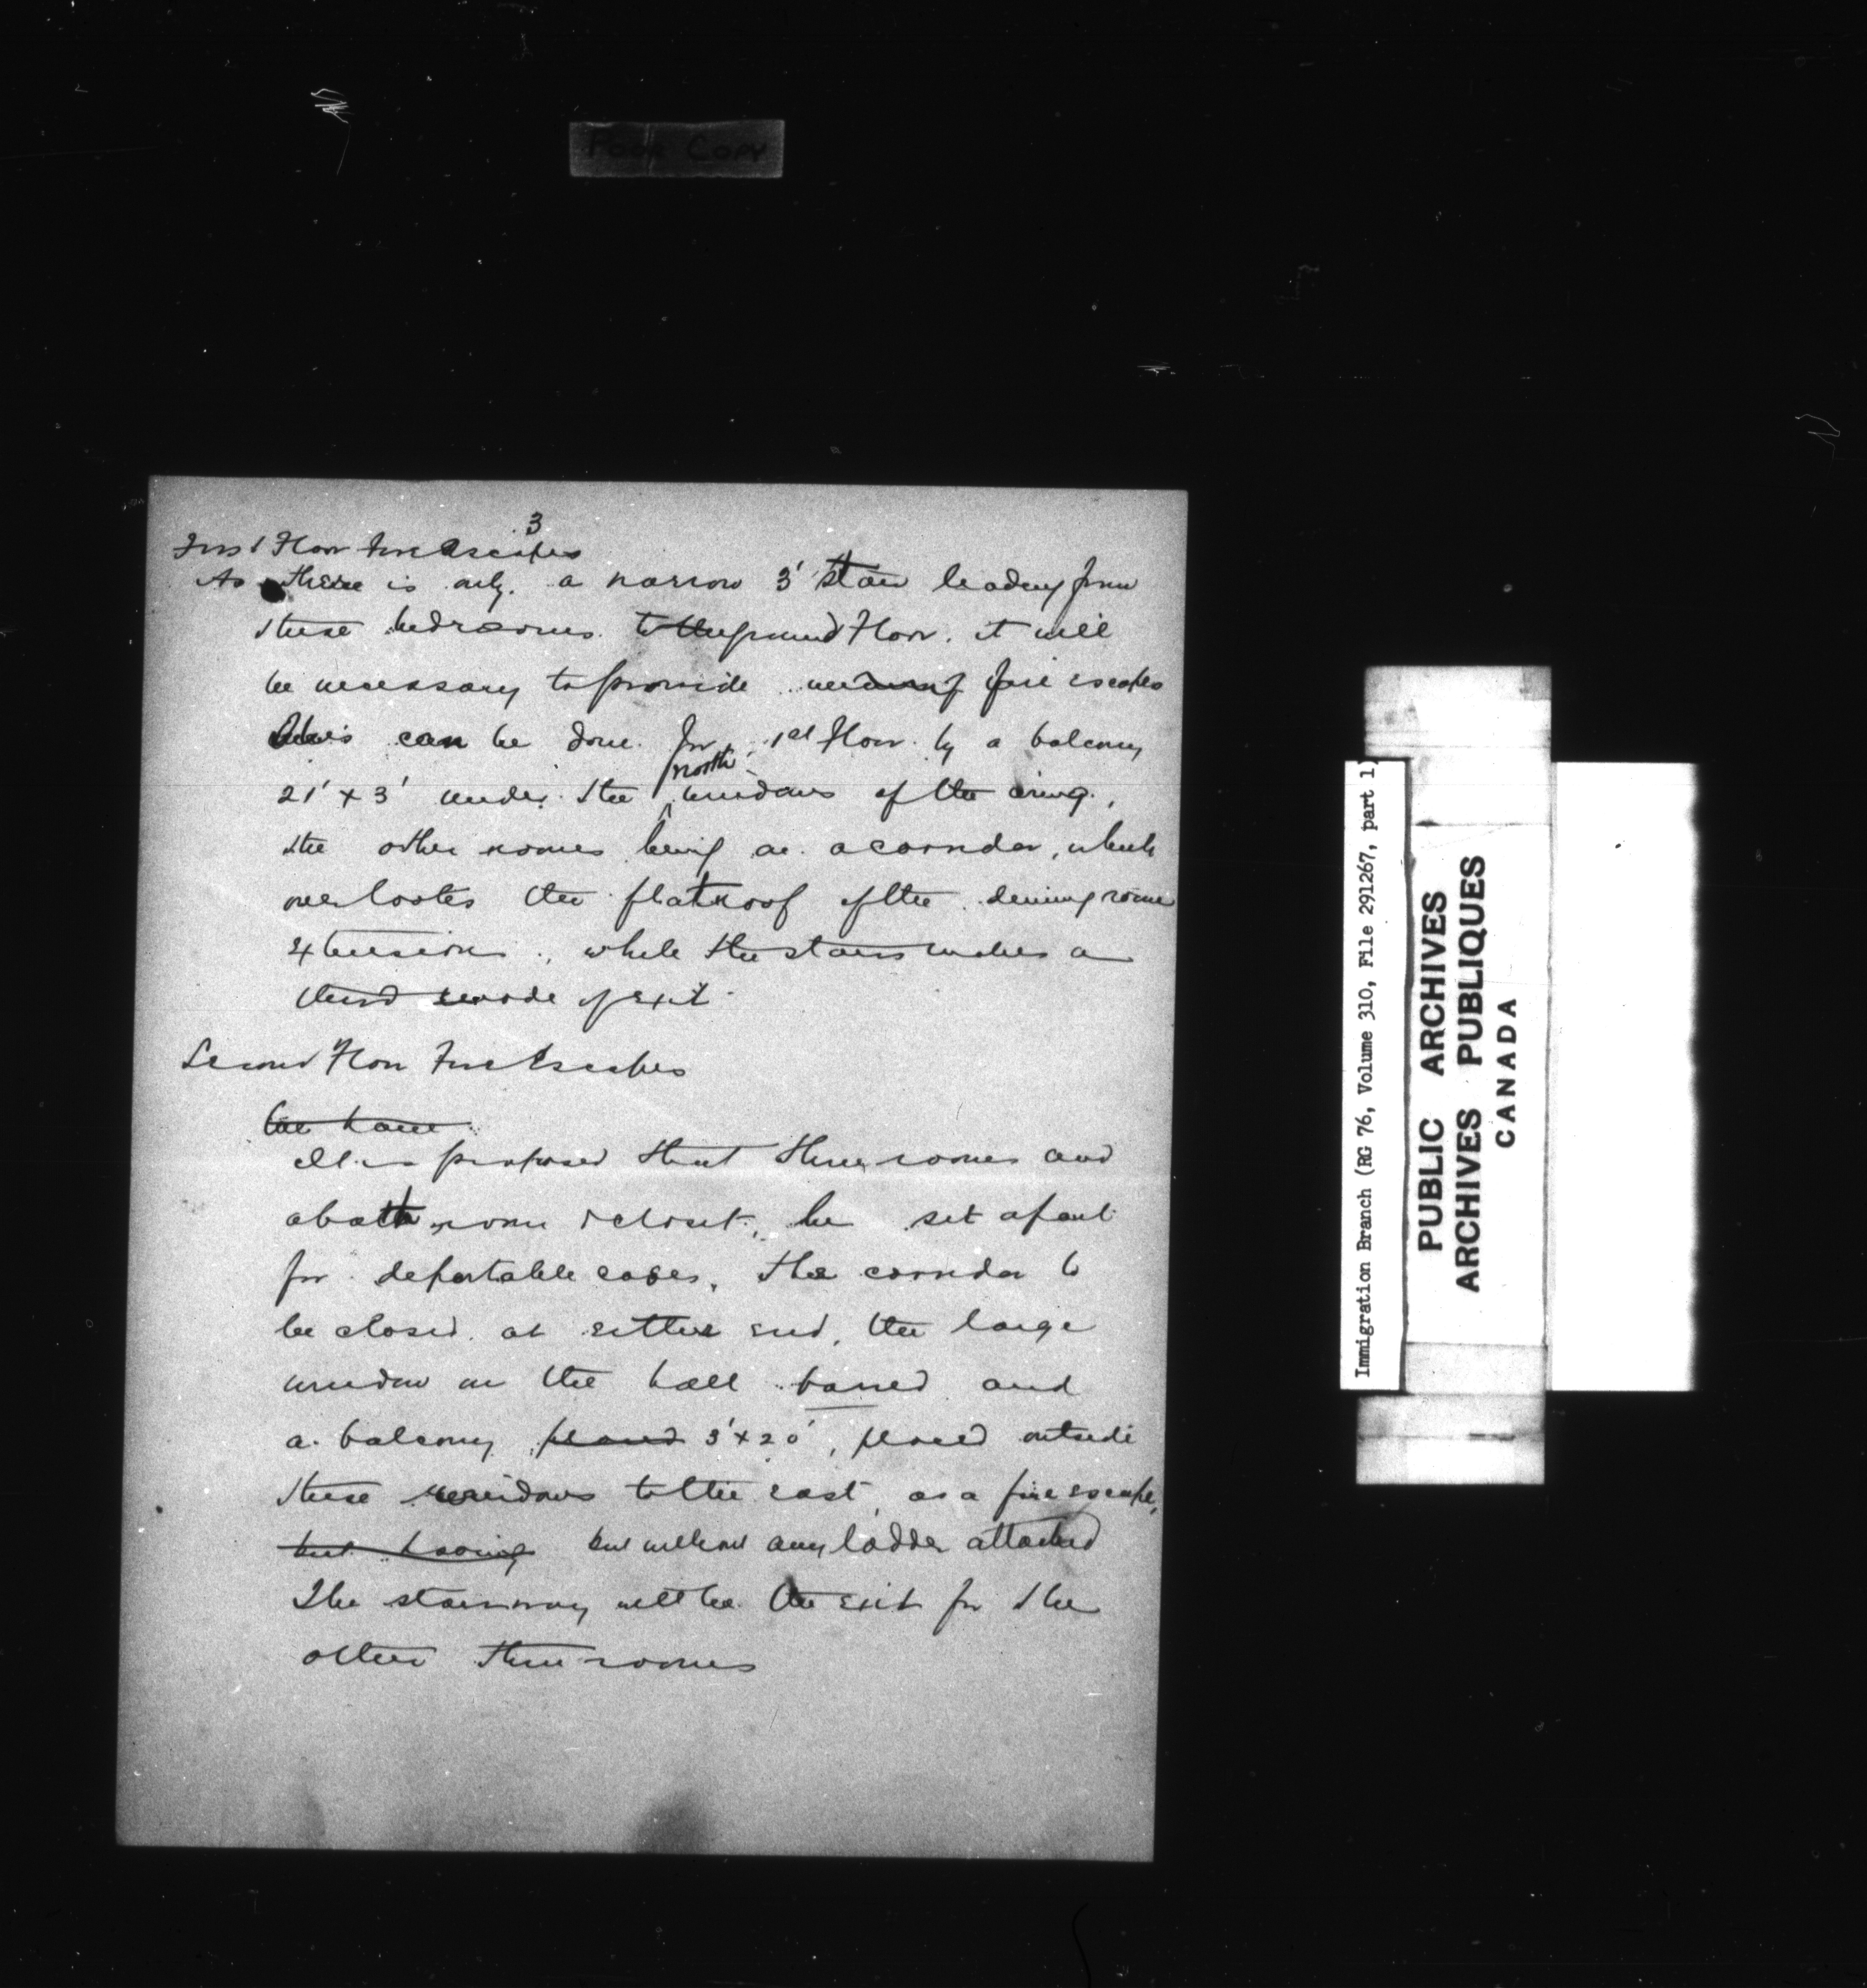 Poor Copy
3
First Floor Fire Escapes
As there is only a narrow 3' stair leading from
these bedrooms to the ground Floor. it will
be necessary to provide fire escapes
this can be done for 1st floor by a balcony
21' x 3' under the north windows of the wing,
the other rooms being on a corridor, which
overlooks the flat roof of the dining room
extension, while the stairs makes a
third mode of exit
Second Floor Fire Escapes
We have
It is proposed that three rooms and
a bath room & closet, be set apart
for deportable cases, the corridor to
be closed at either end, the large
window in the hall barred and
a balcony placed 3' x 20', placed outside
these windows to the east, as a fire escape,
but having but without any ladder attached
The stairway will be the exit for the
other three rooms
Immigration Branch (RG 76, Volume 310, File 291267, part 1)
PUBLIC ARCHIVES
ARCHIVES PUBLIQUES
CANADA